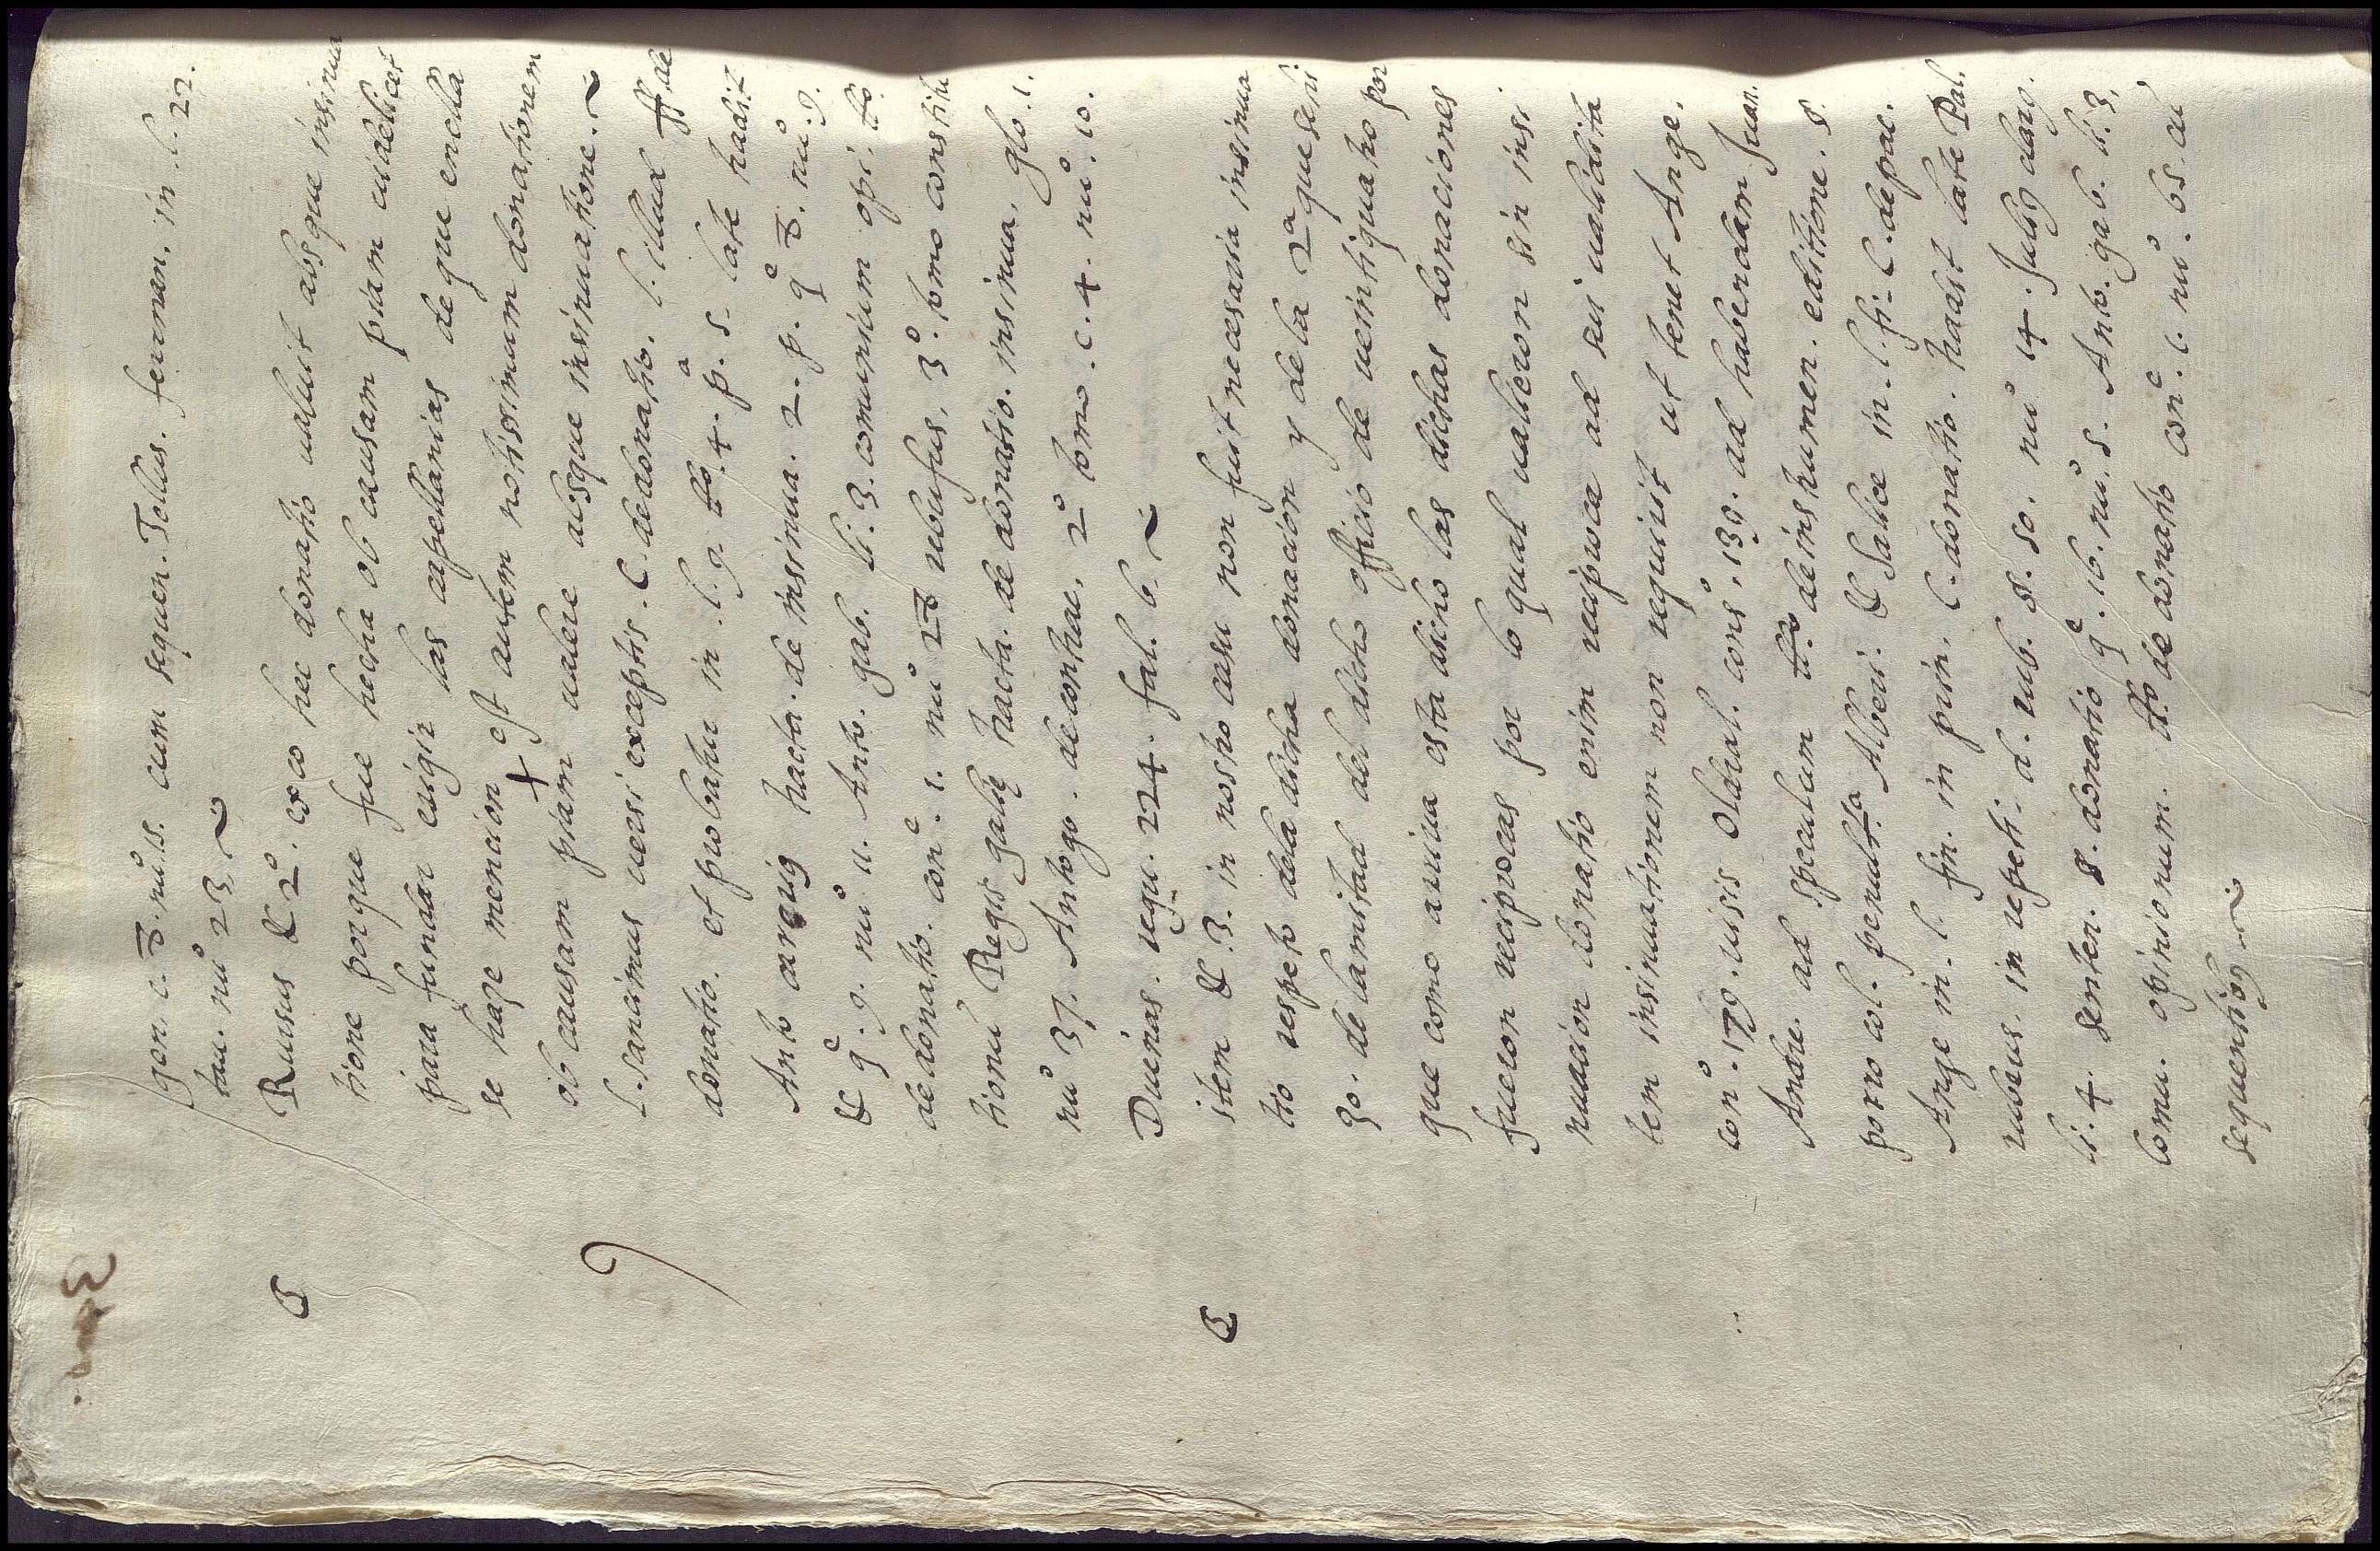 gon. c. nu.º 15. cum sequen. Tellus. fernan. in l. 22.
tau. nu.º 23.
Rursus & 2.º ex eo hec donatio ualuit absque insinua
tione porque fue hecha ob causam piam uidelicet
para fundar erigir las capellanias de que en ella
se haze mencion + est autem notissimum donationem
ob causam piam ualere absque insinuatione.
l. sancimus uersi exceptis. C. de donatio. l. illud ff de
donatio. et probatur in l. 9. tto. 4. p.ª 5. late tradit
Anto
de insinua. 2. p. q.º nu.º 9.
& q.e 9. nu.º 11. Anto. gab. li. 3. comunium opi. tto.
de donatio. con.e 1. nu.º rebufus. 3.º tomo constitu
tionu Regis galię tracta. de donatio. insinua. glo. 1.
nu.º 37. Antogo. de contrac. 2.º tomo. c. 4. nu.º 10.
Duenas. regu. 224. fal. 6.
item & 3. in nostro casu non fuit necesaria insinua
tio respeto dela dicha donacion y dela 2.ª que se hi
zo. de la mitad del dicho officio de ueintiquatro por
que como arriua esta dicho las dichas donaciones
fueron reciprocas por lo qual ualieron sin insi
nuacion donatio enim reciproca ad sui ualidita
tem insinuationem non requirit ut tenet Ange.
con.º 179. uisis Oldral. cons.º 139. ad habendam Juan.
Andre. ad speculum tto. de instrumen. editione. §.
porro col. penult.ta Alberi. & Salice in l. fi. C. de pac.
Ange in l. fin. in prin. C. donatio. tradit late Pal.
rubeus. in repeti. d. rub. §. 50. nu.º 14. Julius clarꝯ.
li. 4. senten. §. donatio q.e 16. nu.º 5. Anto. gab. li. 3.
comu. opinionum. tto de donatio con.e 1. nu.º 65. cu
sequentibꝯ